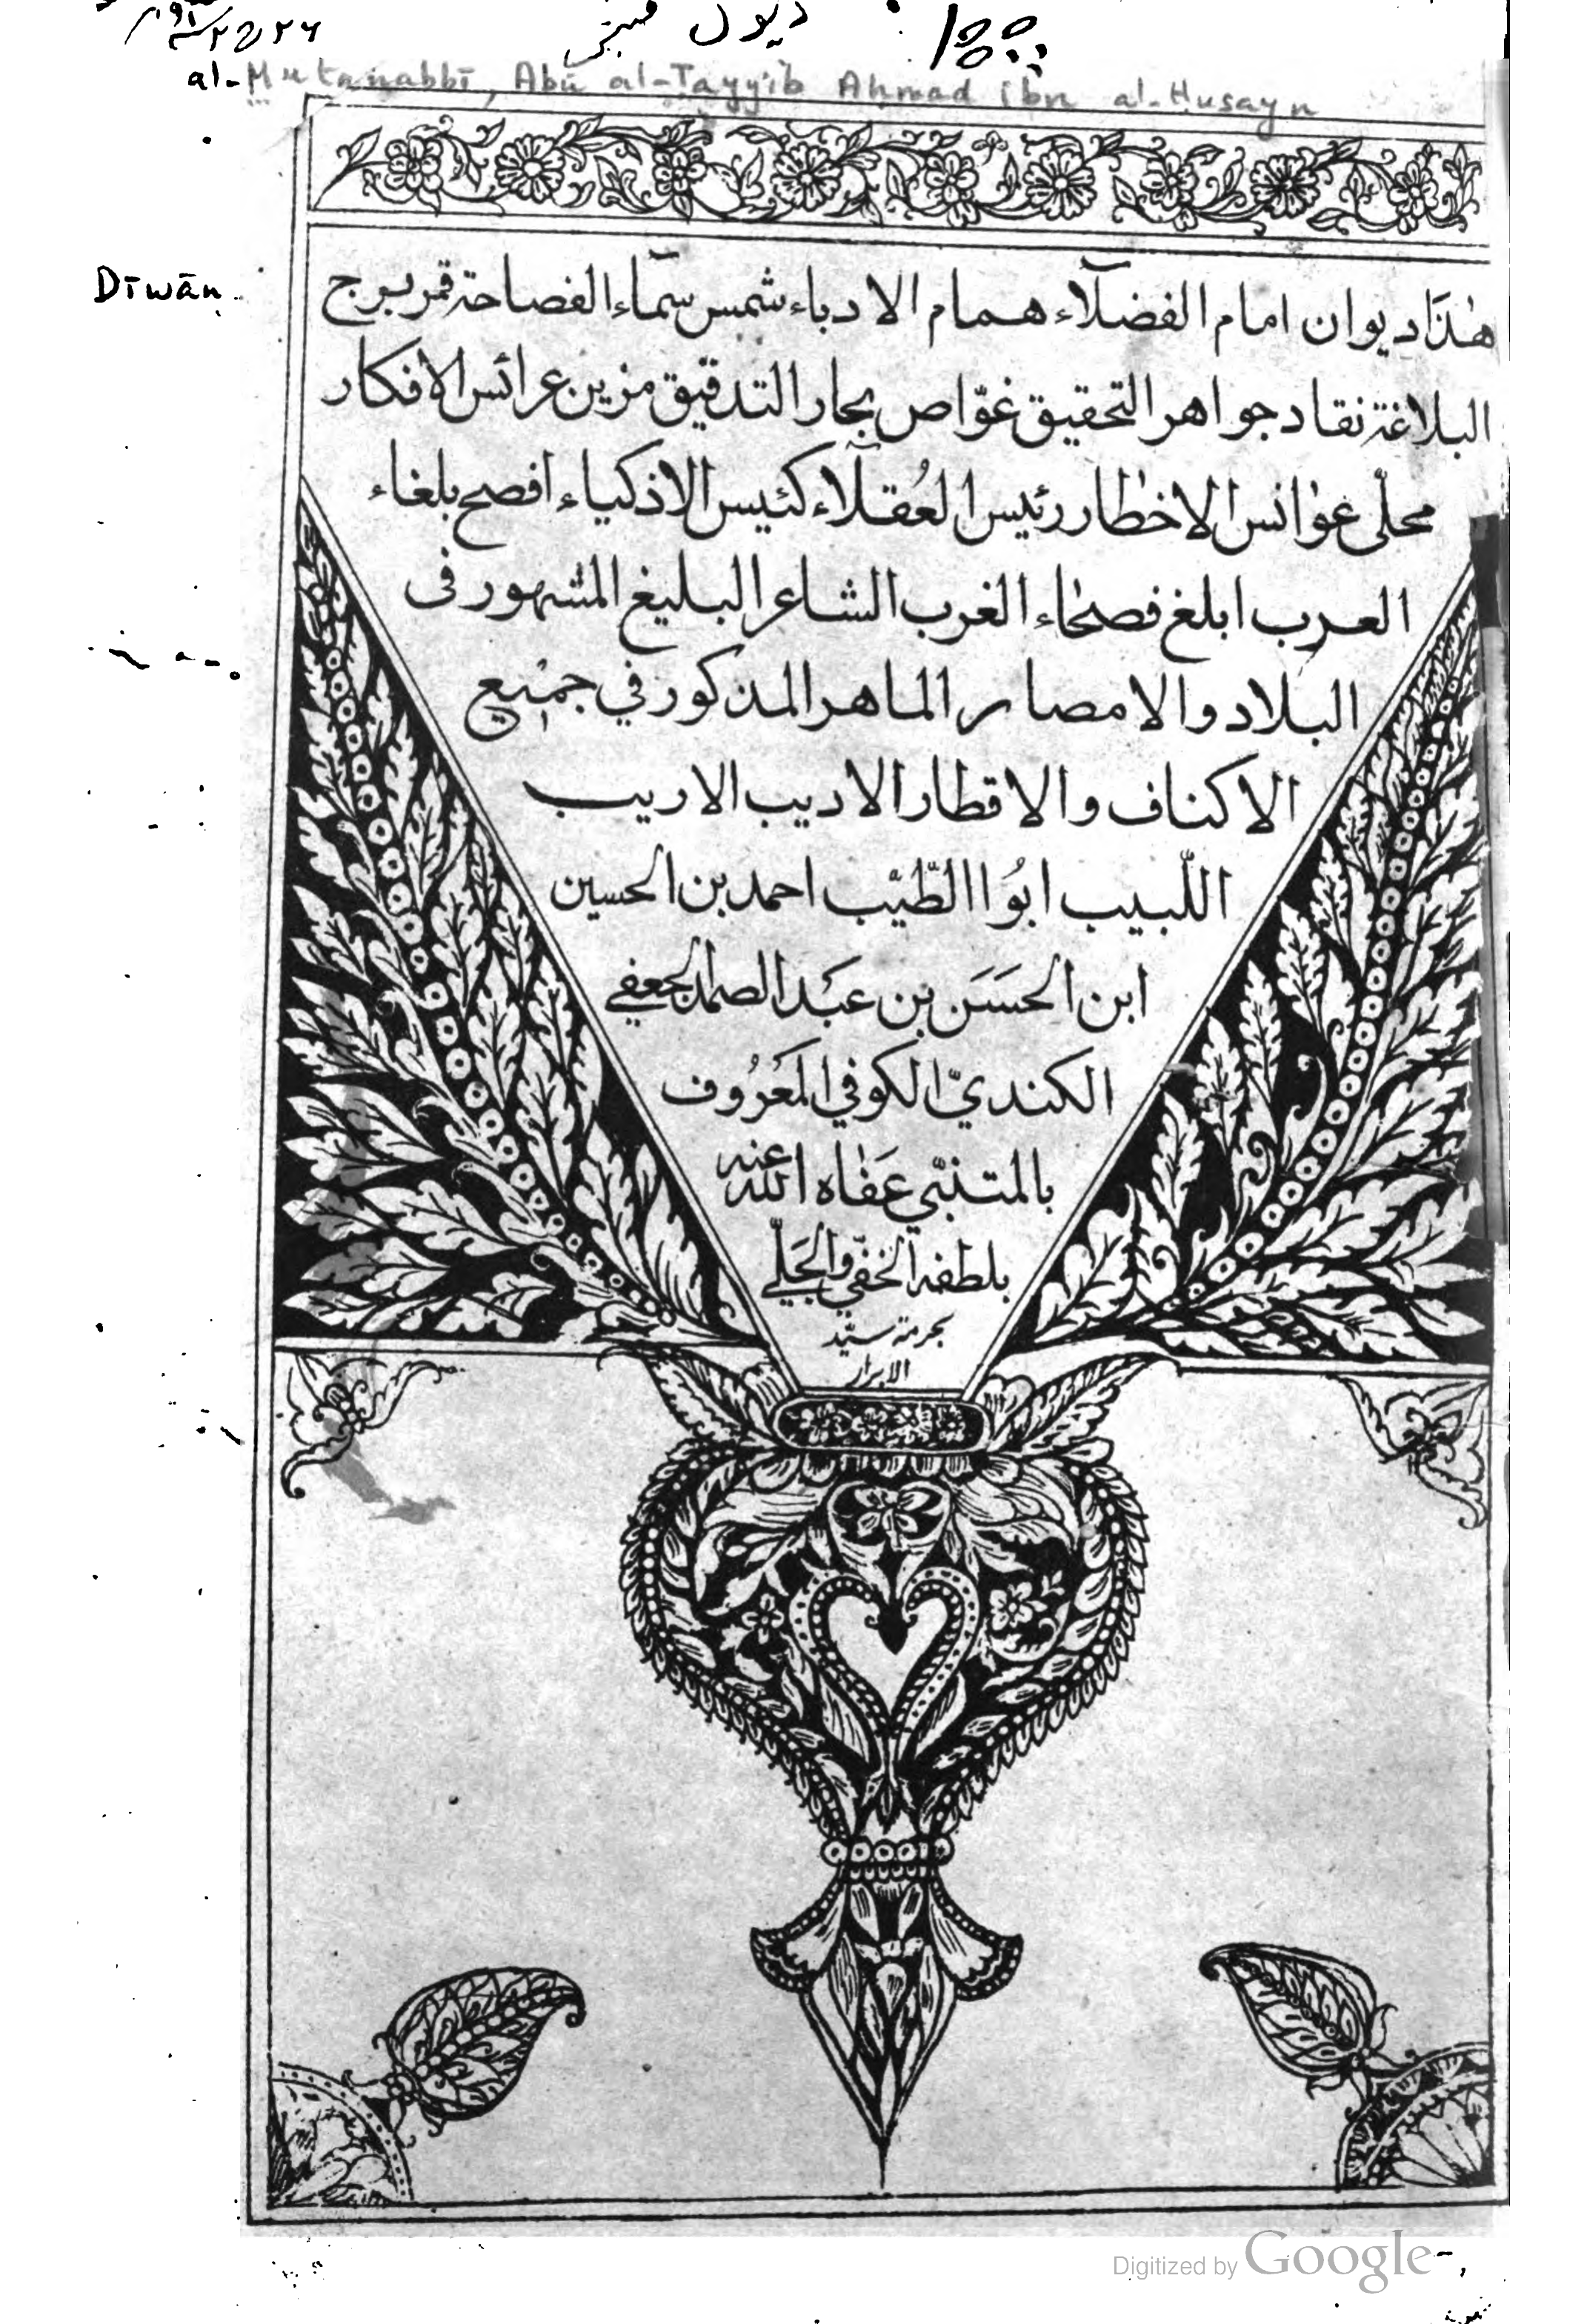 ديوان
al-Mutanabbī, Abū al-Tayyib Ahmad ibn al-Husayn
Dīwān
هٰذَا ديوان امام الفضلآء همام الادباء شمس سمآء الفصاحة قمر بروج
البلاغة نقاد جواهر التحقيق غوّاص بحار التدقيق مزين عرائس الافكار
محلّى غوانس الاخطار رئيس العُقلآء كئيس الاذكياء افصح بلغاء
العرب ابلغ فصحاء الغرب الشاعر البليغ المشهور فى
البلاد والامصار الماهر المذكور في جميع
الاكناف والاقطار الاديب الاريب
اللّبيب ابُو االطّيّب احمد بن الحسين
ابن الحَسَن بن عَبد الصمد الجعفي
الكنديّ الكوفي المَعْرُوف
بالمتنبّي عَفاه الله عنه
بلطفه الخفّي والجَليّ
بحرمة سيّد
الابرار
Digitized by Google